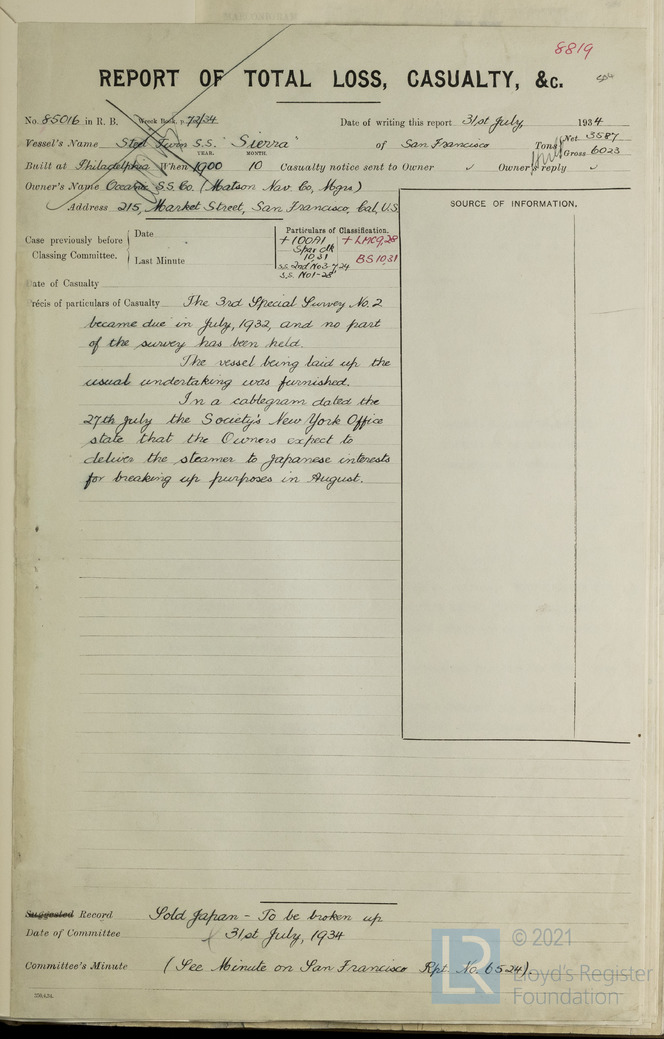 8819
REPORT OF TOTAL LOSS, CASUALTY, &c.
No. 85016 in R. B. Week Book, p. 72/34 Date of writing this report 31st July, 1934
Vessel's Name Steel Twin S.S. "Sierra" of San Francisco Tons { Net 3587
Gross 6023
YEAR. MONTH.
Built at Philadelphia When 1900 10 Casualty notice sent to Owner ✓ Owner's reply ✓
Owner's Name Oceanic S.S. Co. (Matson Nav. Co, Mgrs)
Address 215, Market Street, San Francisco, Cal, U.S.
SOURCE OF INFORMATION.
Case previously before Classing Committee. { Date
Last Minute
Particulars of Classification.
+100A1 +LMC 9,28
Spar dk
10,31 BS 10,31
S.S. 2nd No3-7,24
S.S. No1-28
Date of Casualty
Précis of particulars of Casualty The 3rd Special Survey No. 2
became due in July, 1932, and no part
of the survey has been held.
The vessel being laid up the
usual undertaking was furnished.
In a cablegram dated the
27th July the Society's New York Office
state that the Owners expect to
deliver the steamer to Japanese interests
for breaking up purposes in August.
Suggested Record Sold Japan - To be broken up
Date of Committee 31st July, 1934
Committee's Minute (See Minute on San Francisco Rpt. No. 6524).
LR
© 2021
Lloyd's Register
Foundation